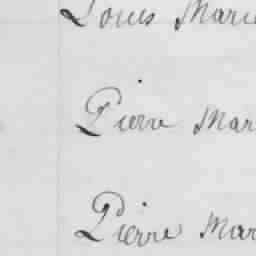 Louis Marie
Pierre Mar
Pierre Mar